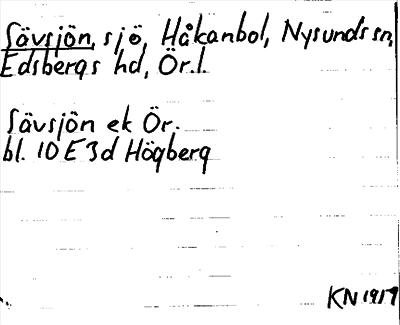 Sävsjön, sjö, Håkanbol, Nysunds sn,
Edsbergs hd, Ör.l.
Sävsjön ek Ör.
bl. 10E3d Högberg
KN 1917